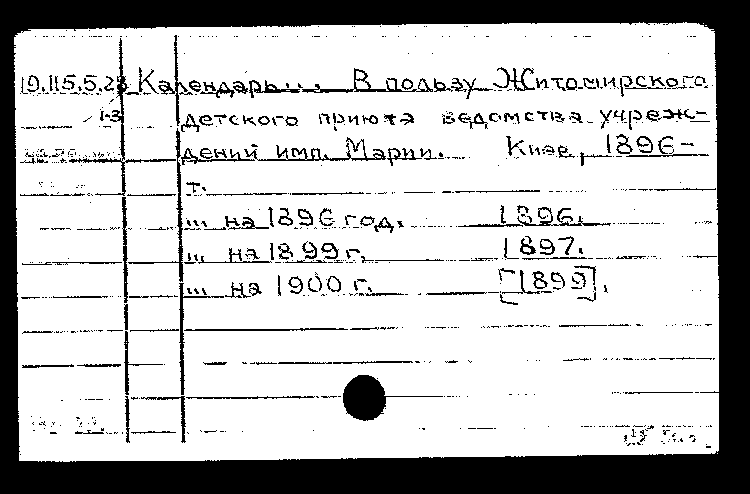 19.115.5.23 Календарь... В пользу Житомирского
1-3 детского приюта ведомства учреж-
дений имп. Марии. Киев, 1896-
т.
... на 1896 год. 1896.
... на 1899 г. 1897.
... на 1900 г. [1899].